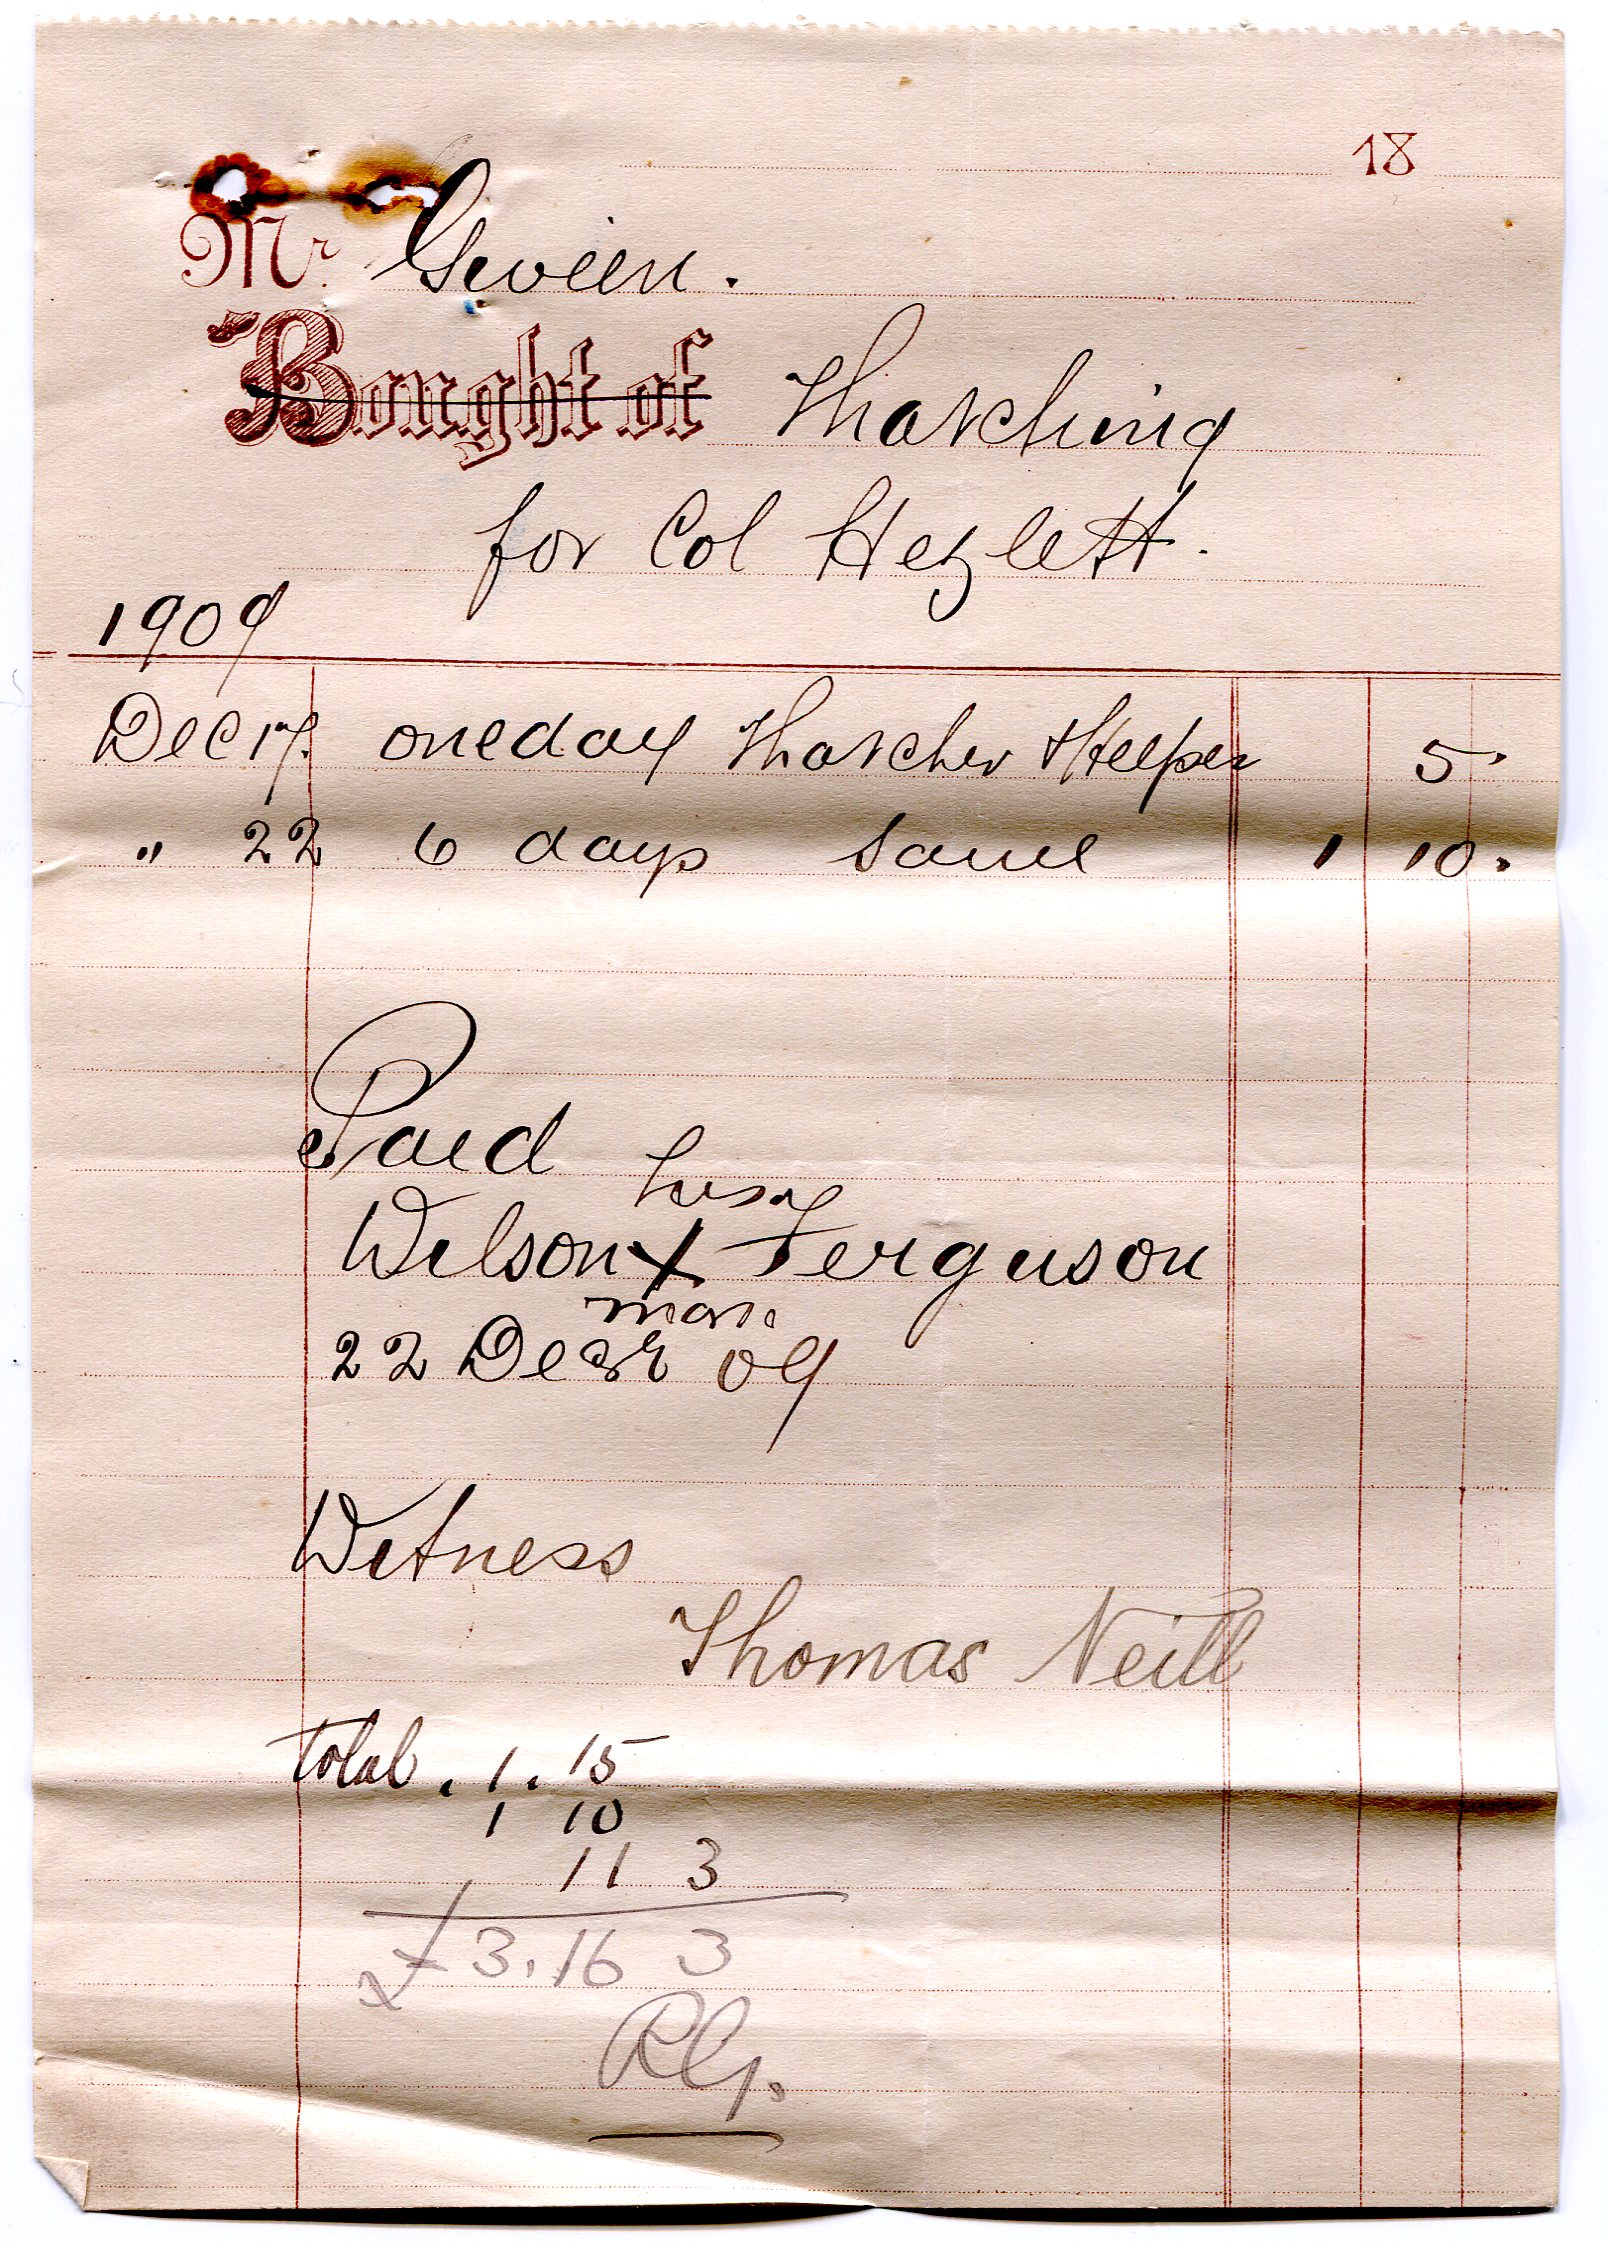 18
Mr. Gwien.
Bought of Thatching
for Col Hezlett.
1909
Dec 17. one day Thatcher & Helper 5.
" 22 6 days same 1 10.
Paid
his
Wilson X Ferguson
mark
22 Decr 09
Witness
Thomas Neill
total . 1 . 15
1 10
11 3
£ 3.16 3
RG.